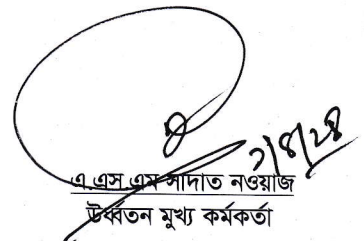 ২/৪/২৪
এ.এস.এম সাদাত নওয়াজ
উর্ধ্বতন মুখ্য কর্মকর্তা